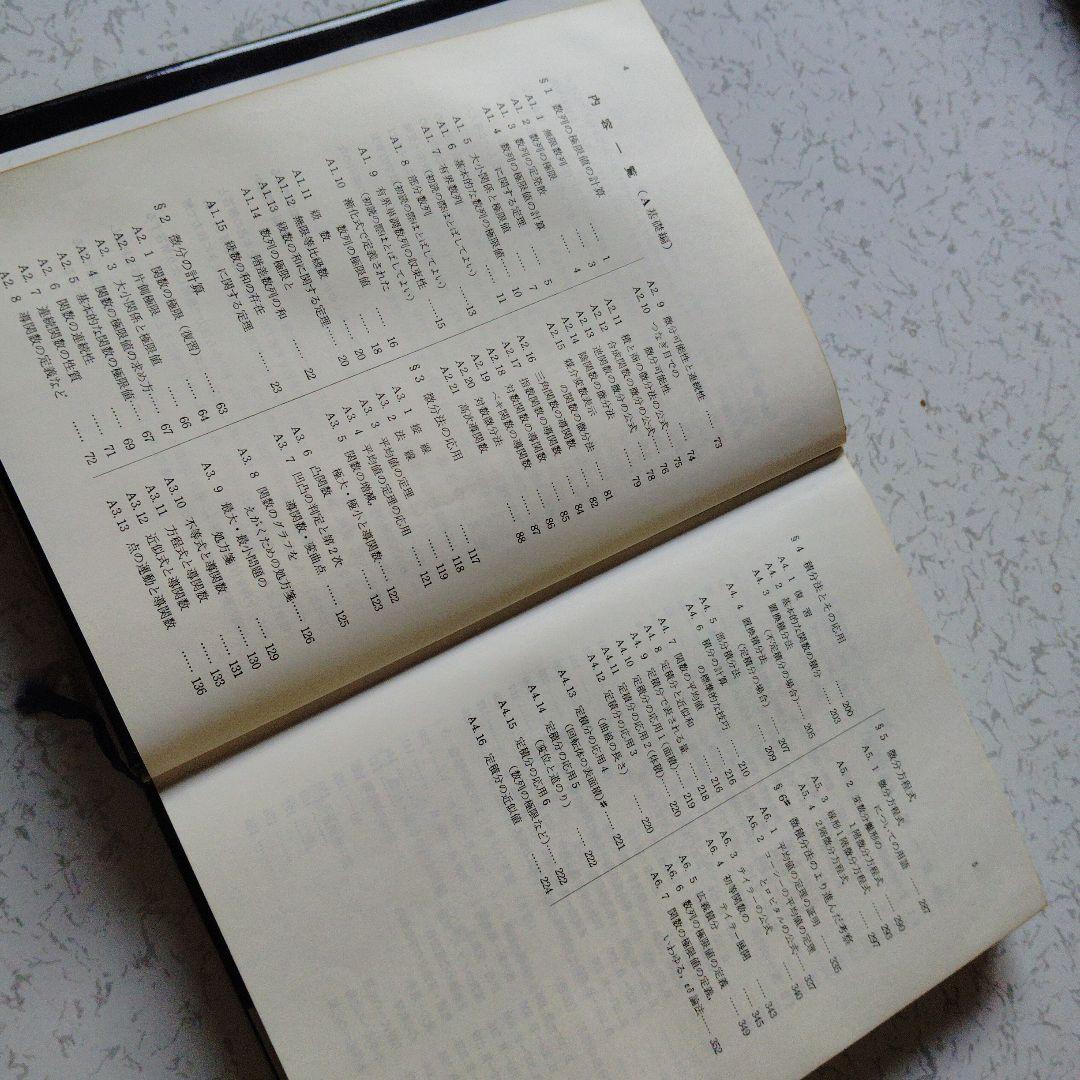 4
内容一覧（A 基礎編）
§1 数列の極限値の計算 …… 1
A1. 1 無限数列 …… 3
A1. 2 数列の極限 …… 4
A1. 3 数列の定発散 …… 5
A1. 4 数列の極限値の計算
に関する定理 …… 7
A1. 5 大小関係と極限値 …… 10
A1. 6 基本的な数列の極限値 …… 11
A1. 7 有界数列
(初読の際はとばしてよい) …… 13
A1. 8 部分数列
(初読の際はとばしてよい) …… 15
A1. 9 有界単調数列の収束性 …… 16
A1.10 漸化式で定義された
数列の極限値 …… 18
A1.11 級数 …… 20
A1.12 無限等比級数 …… 20
A1.13 級数の和に関する定理 …… 22
A1.14 数列の極限と
階差数列の和 …… 22
A1.15 級数の和の存在
に関する定理 …… 23
§2 微分の計算
A2. 1 関数の極限（復習） …… 63
A2. 2 片側極限 …… 64
A2. 3 大小関係と極限値 …… 66
A2. 4 関数の極限値の求め方 …… 67
A2. 5 基本的な関数の極限値 …… 67
A2. 6 関数の連続性 …… 69
A2. 7 連続関数の性質 …… 71
A2. 8 導関数の定義など …… 72
A2. 9 微分可能性と連続性 …… 73
A2.10 つなぎ目での
微分可能性 …… 74
A2.11 積と商の微分法の公式 …… 75
A2.12 合成関数の微分の公式 …… 76
A2.13 逆関数の微分法 …… 78
A2.14 陰関数の微分法 …… 79
A2.15 媒介変数表示
の関数の微分法 …… 81
A2.16 三角関数の導関数 …… 82
A2.17 指数関数の導関数 …… 84
A2.18 対数関数の導関数 …… 85
A2.19 ベキ関数の導関数 …… 86
A2.20 対数微分法 …… 87
A2.21 高次導関数 …… 88
§3 微分法の応用
A3. 1 接線 …… 117
A3. 2 法線 …… 118
A3. 3 平均値の定理 …… 119
A3. 4 平均値の定理の応用 …… 121
A3. 5 関数の増減,
極大・極小と導関数 …… 122
A3. 6 凸関数 …… 123
A3. 7 凹凸の判定と第2次
導関数・変曲点 …… 125
A3. 8 関数のグラフを
えがくための処方箋 …… 126
A3. 9 最大・最小問題の
処方箋 …… 129
A3.10 不等式と導関数 …… 130
A3.11 方程式と導関数 …… 131
A3.12 近似式と導関数 …… 133
A3.13 点の運動と導関数 …… 136
5
§4 積分法とその応用
A4. 1 復習 …… 200
A4. 2 基本的な関数の積分 …… 203
A4. 3 置換積分法
(不定積分の場合) …… 205
A4. 4 置換積分法
(定積分の場合) …… 207
A4. 5 部分積分法 …… 209
A4. 6 積分の計算
の標準的な技巧 …… 210
A4. 7 関数の平均値 …… 216
A4. 8 定積分と近似和 …… 216
A4. 9 定積分で表される量 …… 218
A4.10 定積分の応用1(面積) …… 219
A4.11 定積分の応用2(体積) …… 220
A4.12 定積分の応用3
(曲線の長さ) …… 220
A4.13 定積分の応用4
(回転体の表面積)# …… 221
A4.14 定積分の応用5
(変位と道のり) …… 222
A4.15 定積分の応用6
(数列の極限など) …… 222
A4.16 定積分の近似値 …… 224
§5 微分方程式
A5. 1 微分方程式
についての用語 …… 287
A5. 2 変数分離形の
1階微分方程式 …… 290
A5. 3 線形1階微分方程式 …… 293
A5. 4 2階微分方程式 …… 297
§6# 微積分法のより進んだ考察
A6. 1 平均値の定理の証明 …… 335
A6. 2 コーシーの平均値の定理
とロピタルの公式 …… 337
A6. 3 テイラーの公式 …… 340
A6. 4 初等関数の
テイラー展開 …… 343
A6. 5 広義積分 …… 345
A6. 6 数列の極限値の定義 …… 349
A6. 7 関数の極限値の定義,
いわゆる, εδ 論法 …… 352